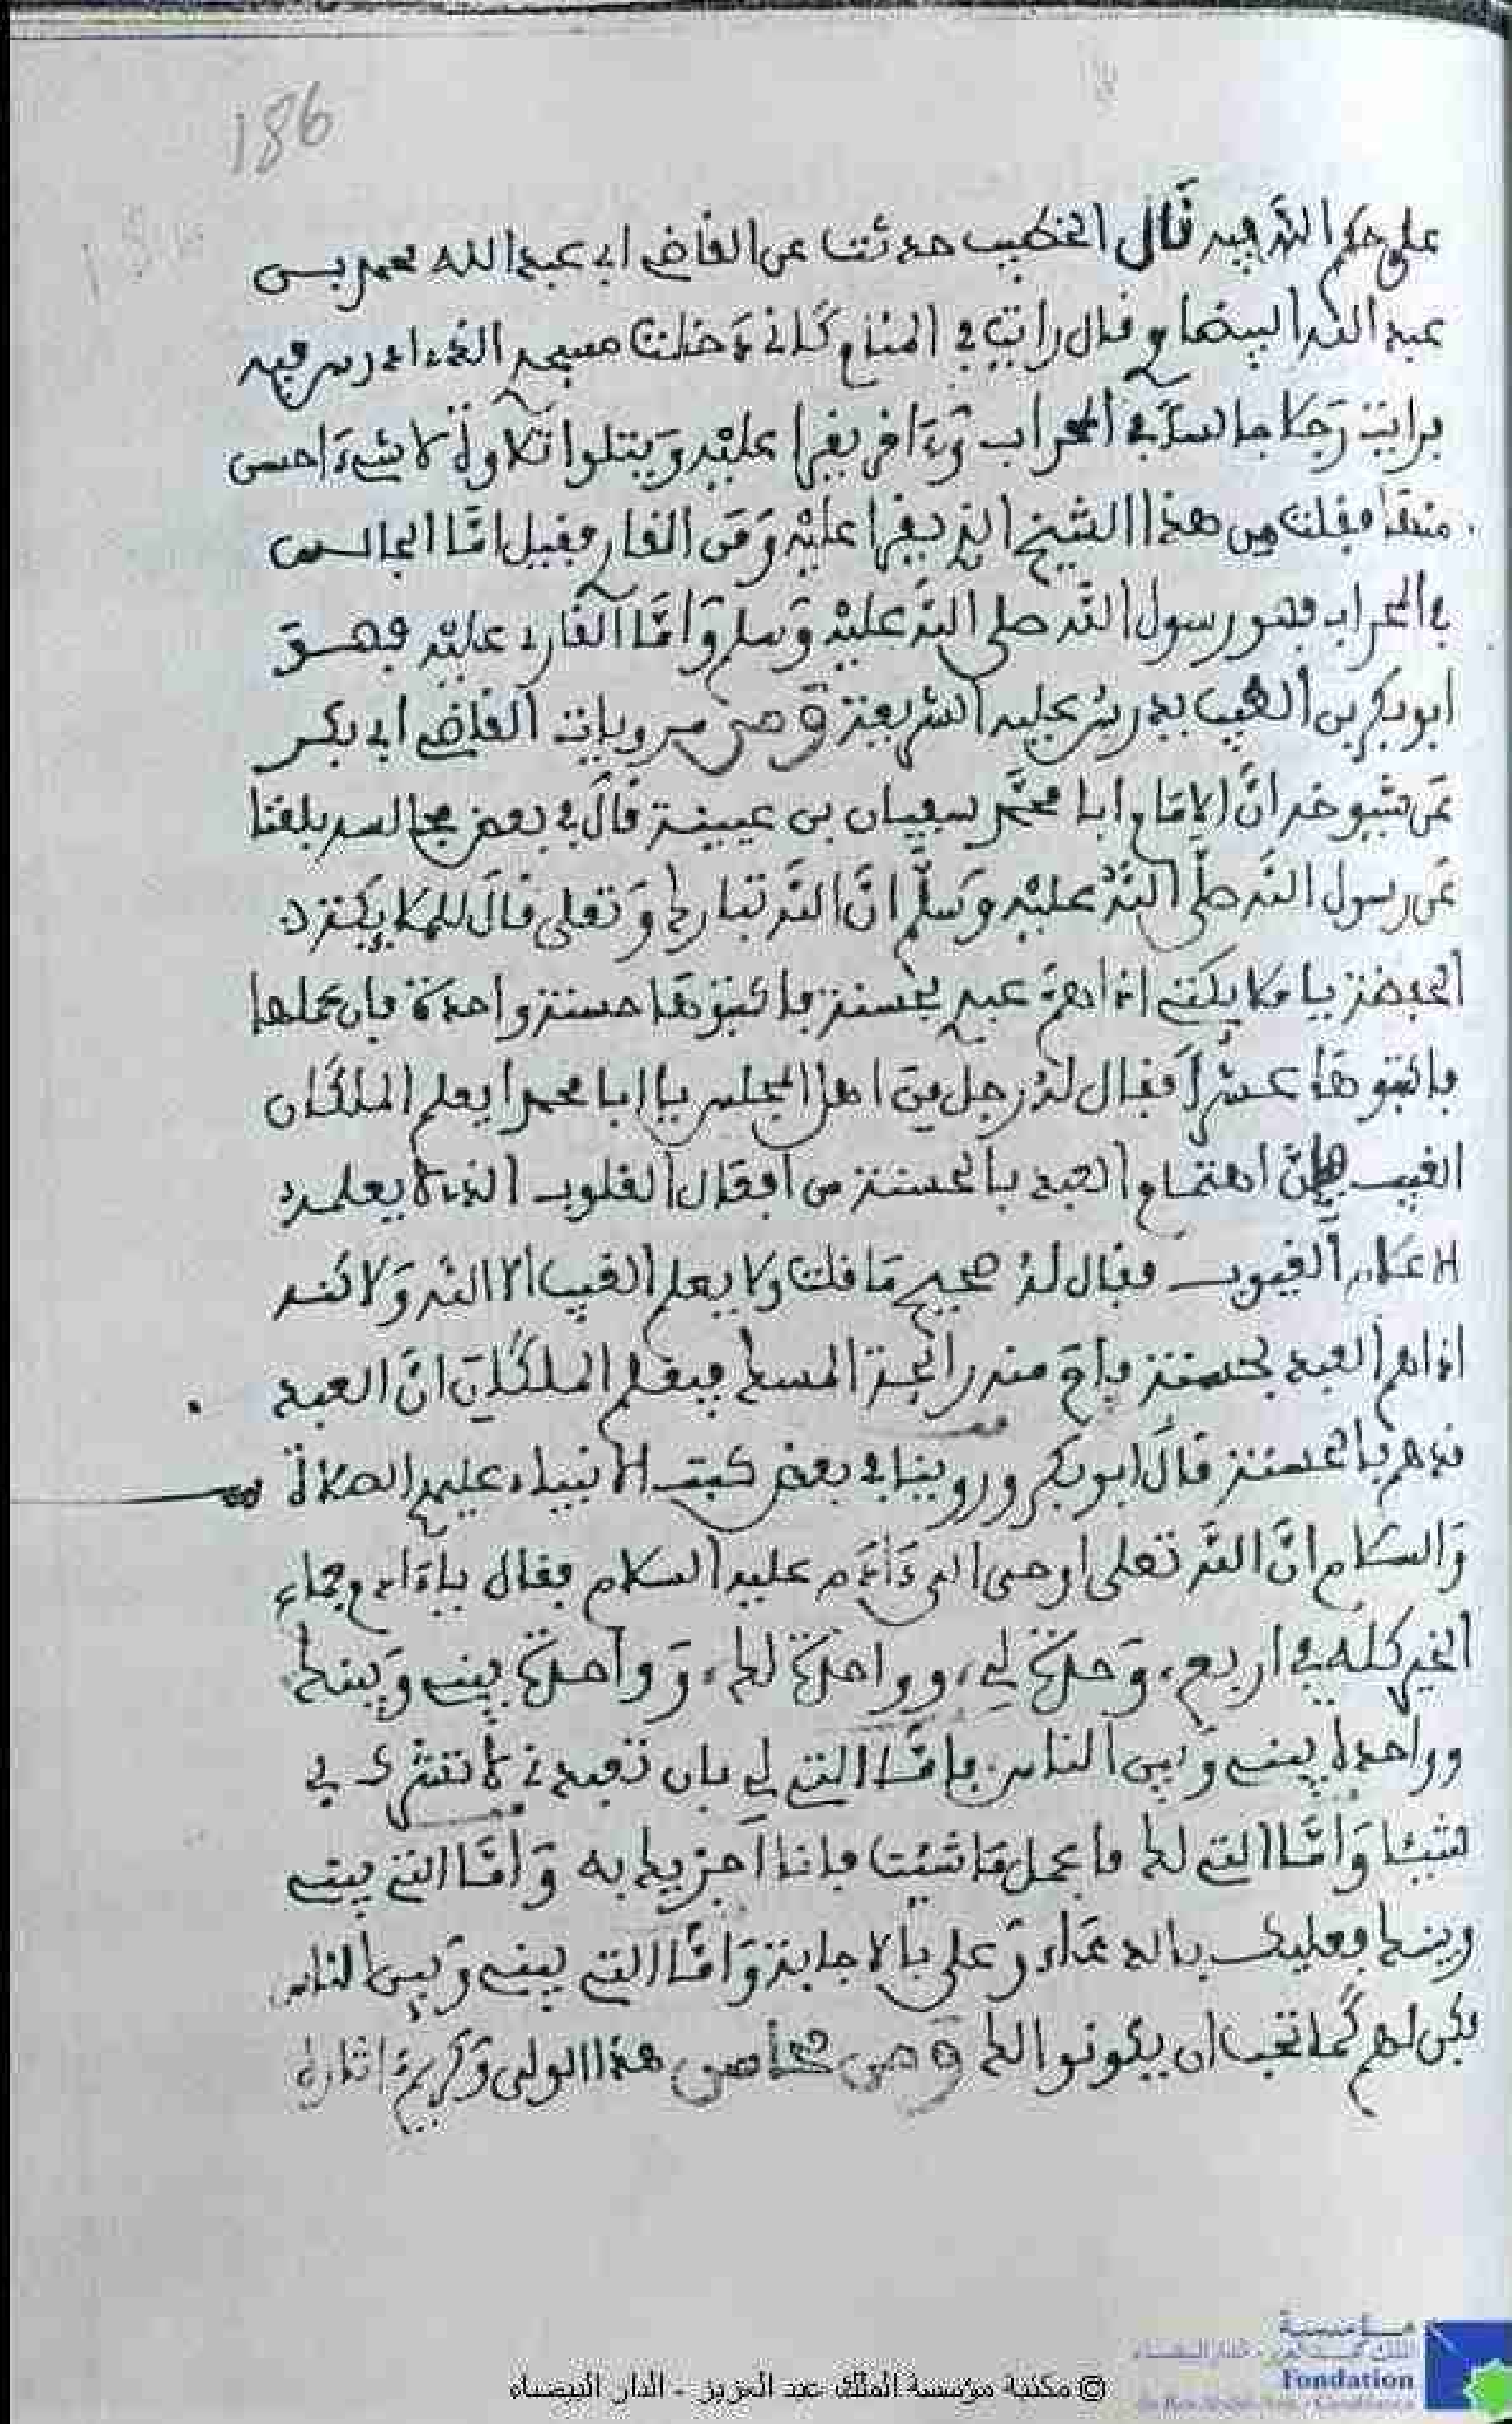 186
على حكم الله فيه قال الخطيب حدثت عن القاضي ابي عبد الله محمد بن
عبد الله البيضاوي قال رايت في المنام كاني دخلت مسجد الذي ادرس فيه
فرايت رجلا جالسا في المحراب وءاخر يقرا عليه ويتلوا تلاوة لا شيء احسن
منها فقلت من هذا الشيخ الذي يقرا عليه ومن القار فقيل اما الجالس
في المحراب فهو رسول الله صلى الله عليه وسلم واما القارئ عليه فهو
ابو بكر بن الطيب يدرس عليه الشريعة ومن مرويات القاضي ابي بكر
عن شيوخه ان الامام ابا محمد سفيان بن عيينة قال في بعض مجالسه بلغنا
عن رسول الله صلى الله عليه وسلم ان الله تبارك وتعلى قال للملايكة
الحفظة يا ملايكتي اذا هم عبدي بحسنة فاثبتوها حسنة واحدة فان عملها
فاثبتوها عشرا فقال له رجل من اهل المجلس يا ابا محمد ايعلم الملكان
الغيب فان اهتمام العبد بالحسنة من افعال القلوب الذي لا يعلمه
الا علام الغيوب فقال له صحيح ما قلت ولا يعلم الغيب الا الله ولاكنه
اذا هم العبد بحسنة فاح منه رائحة المسك فيعلم الملكان ان العبد
قد هم بالحسنة قال ابو بكر وروينا في بعض كتب الانبياء عليهم الصلاة
والسلام ان الله تعلى اوحى الى ءادم عليه السلام فقال يا ءادم جماع
الخير كله في اربع، وحدة لي، وواحدة لك، وواحدة بيني وبينك
وواحدة بينك وبين الناس فاما التي لي بان تعبدني لا تشرك بي
شيئا واما التي لك فاعمل ما شئت فانا اجزيك به واما التي بيني
وبينك فعليك بالدعاء وعلي بالاجابة واما التي بينك وبين الناس
فكن لهم كما تحب ان يكونوا لك ومن محاسن هذا الولي وكريم اثاره
مؤسسة
Fondation
© مكتبة مؤسسة الملك عبد العزيز - الدار البيضاء